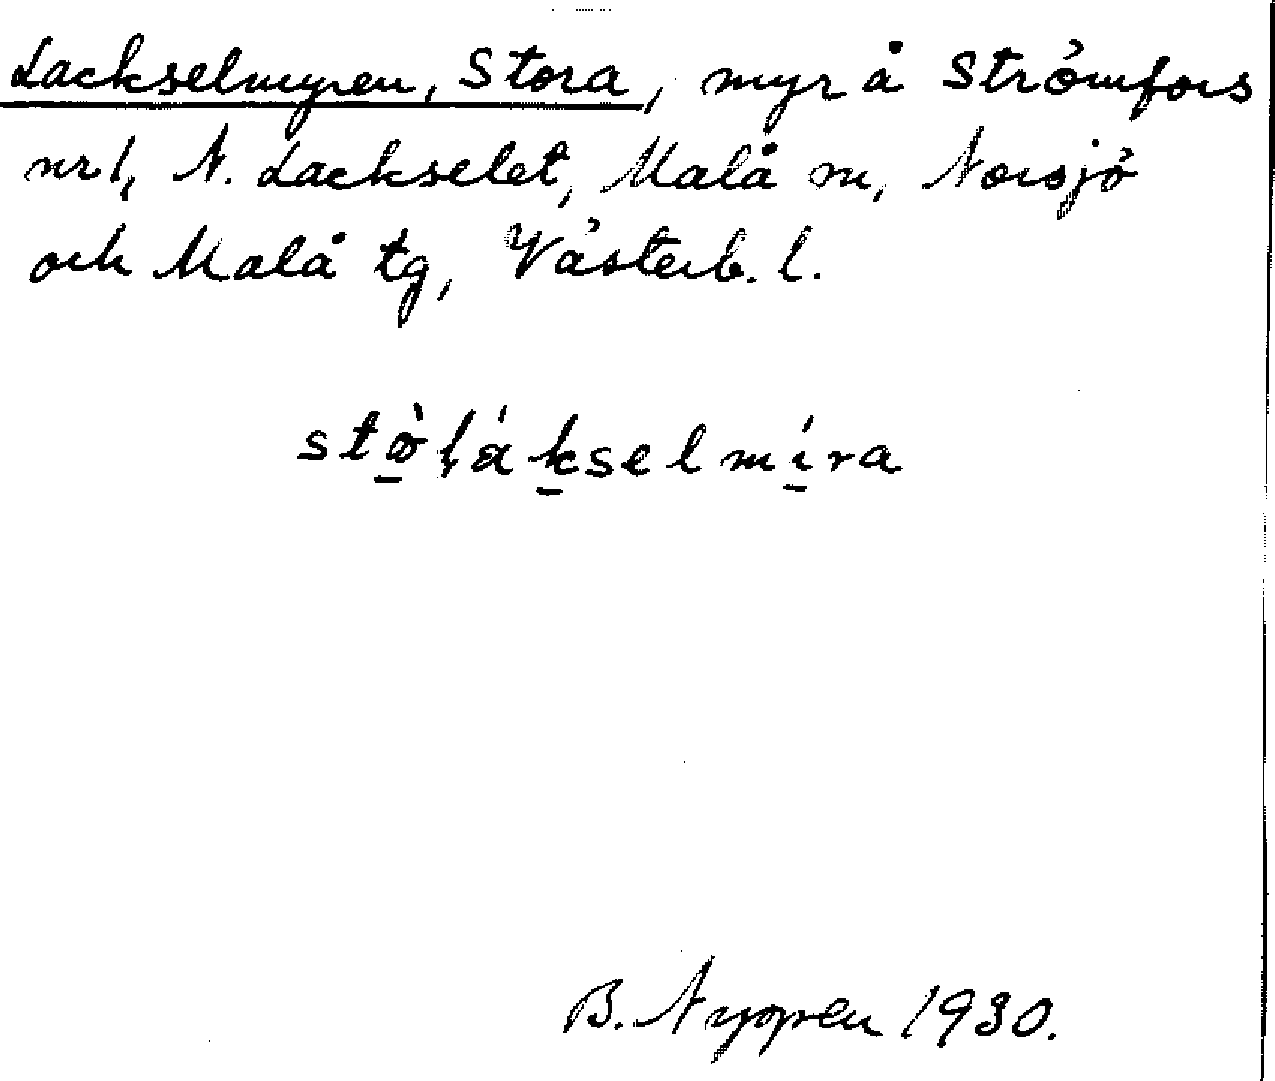 Lackselmyren, Stora, myr å Strömfors
nr 1, N. Lackselet, Malå sn, Norsjö
och Malå tg, Västerb. l.
stø̀lákselmíra
B. Nygren 1930.